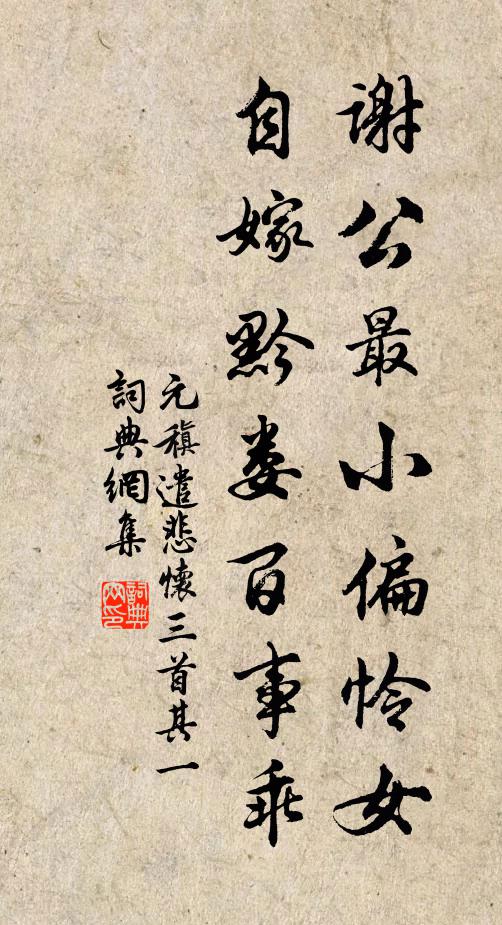 谢公最小偏怜女
自嫁黔娄百事乖
元稹遣悲懷三首其一
詞典網集
詞典網印